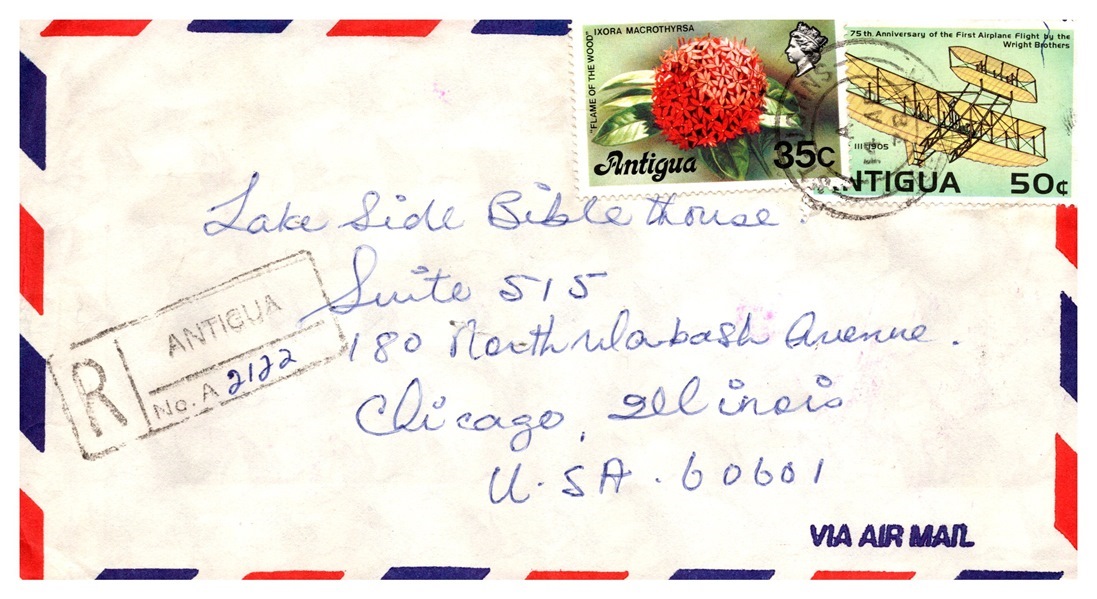 IXORA MACROTHYRSA
"FLAME OF THE WOOD"
Antigua
35c
75th. Anniversary of the First Airplane Flight by the
Wright Brothers
III 1905
ANTIGUA 50¢
Lake Side Bible House.
Suite 515
180 North Wabash Avenue.
Chicago, Illinois
U.S.A. 60601
R
ANTIGUA
No. A 2122
VIA AIR MAIL